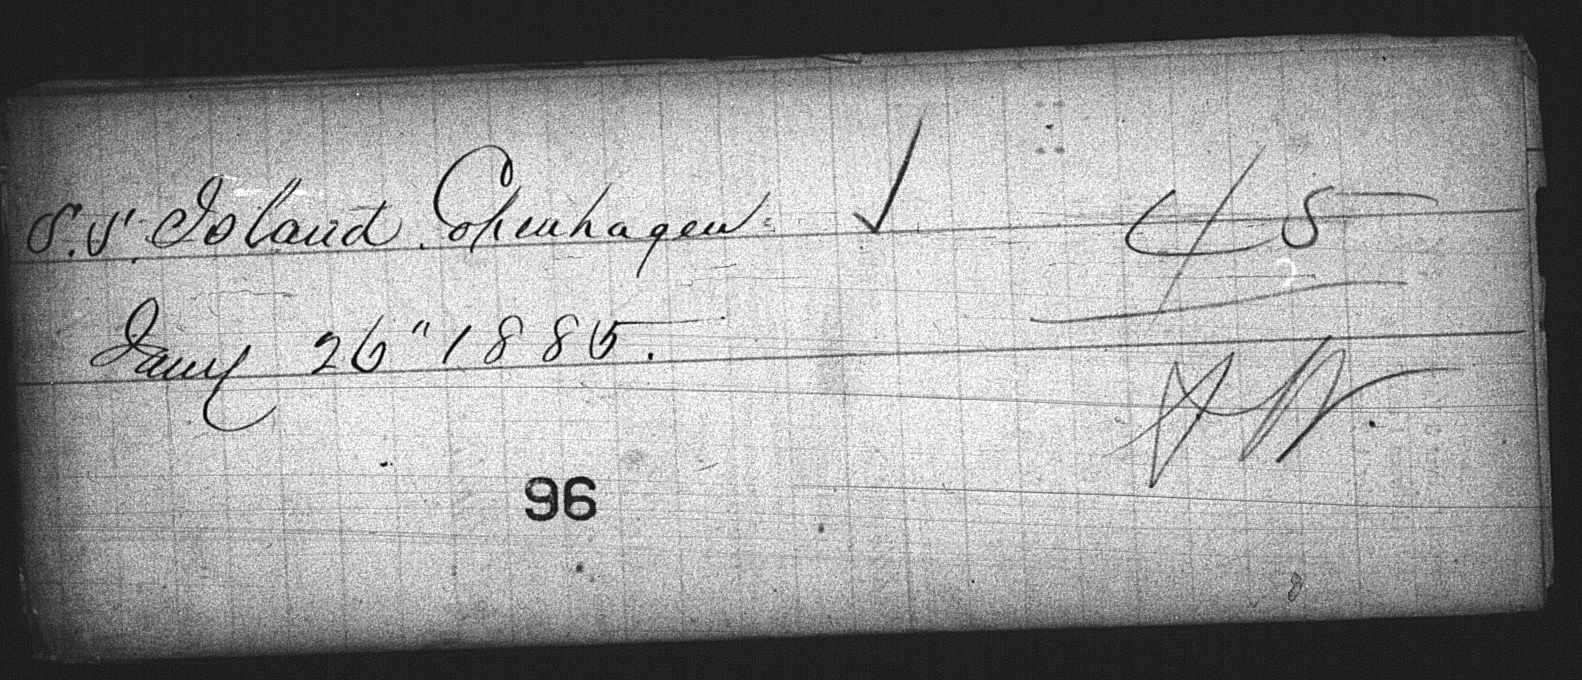 S.S. Island Copenhagen ✓ 45
Jany 26" 1885.
96